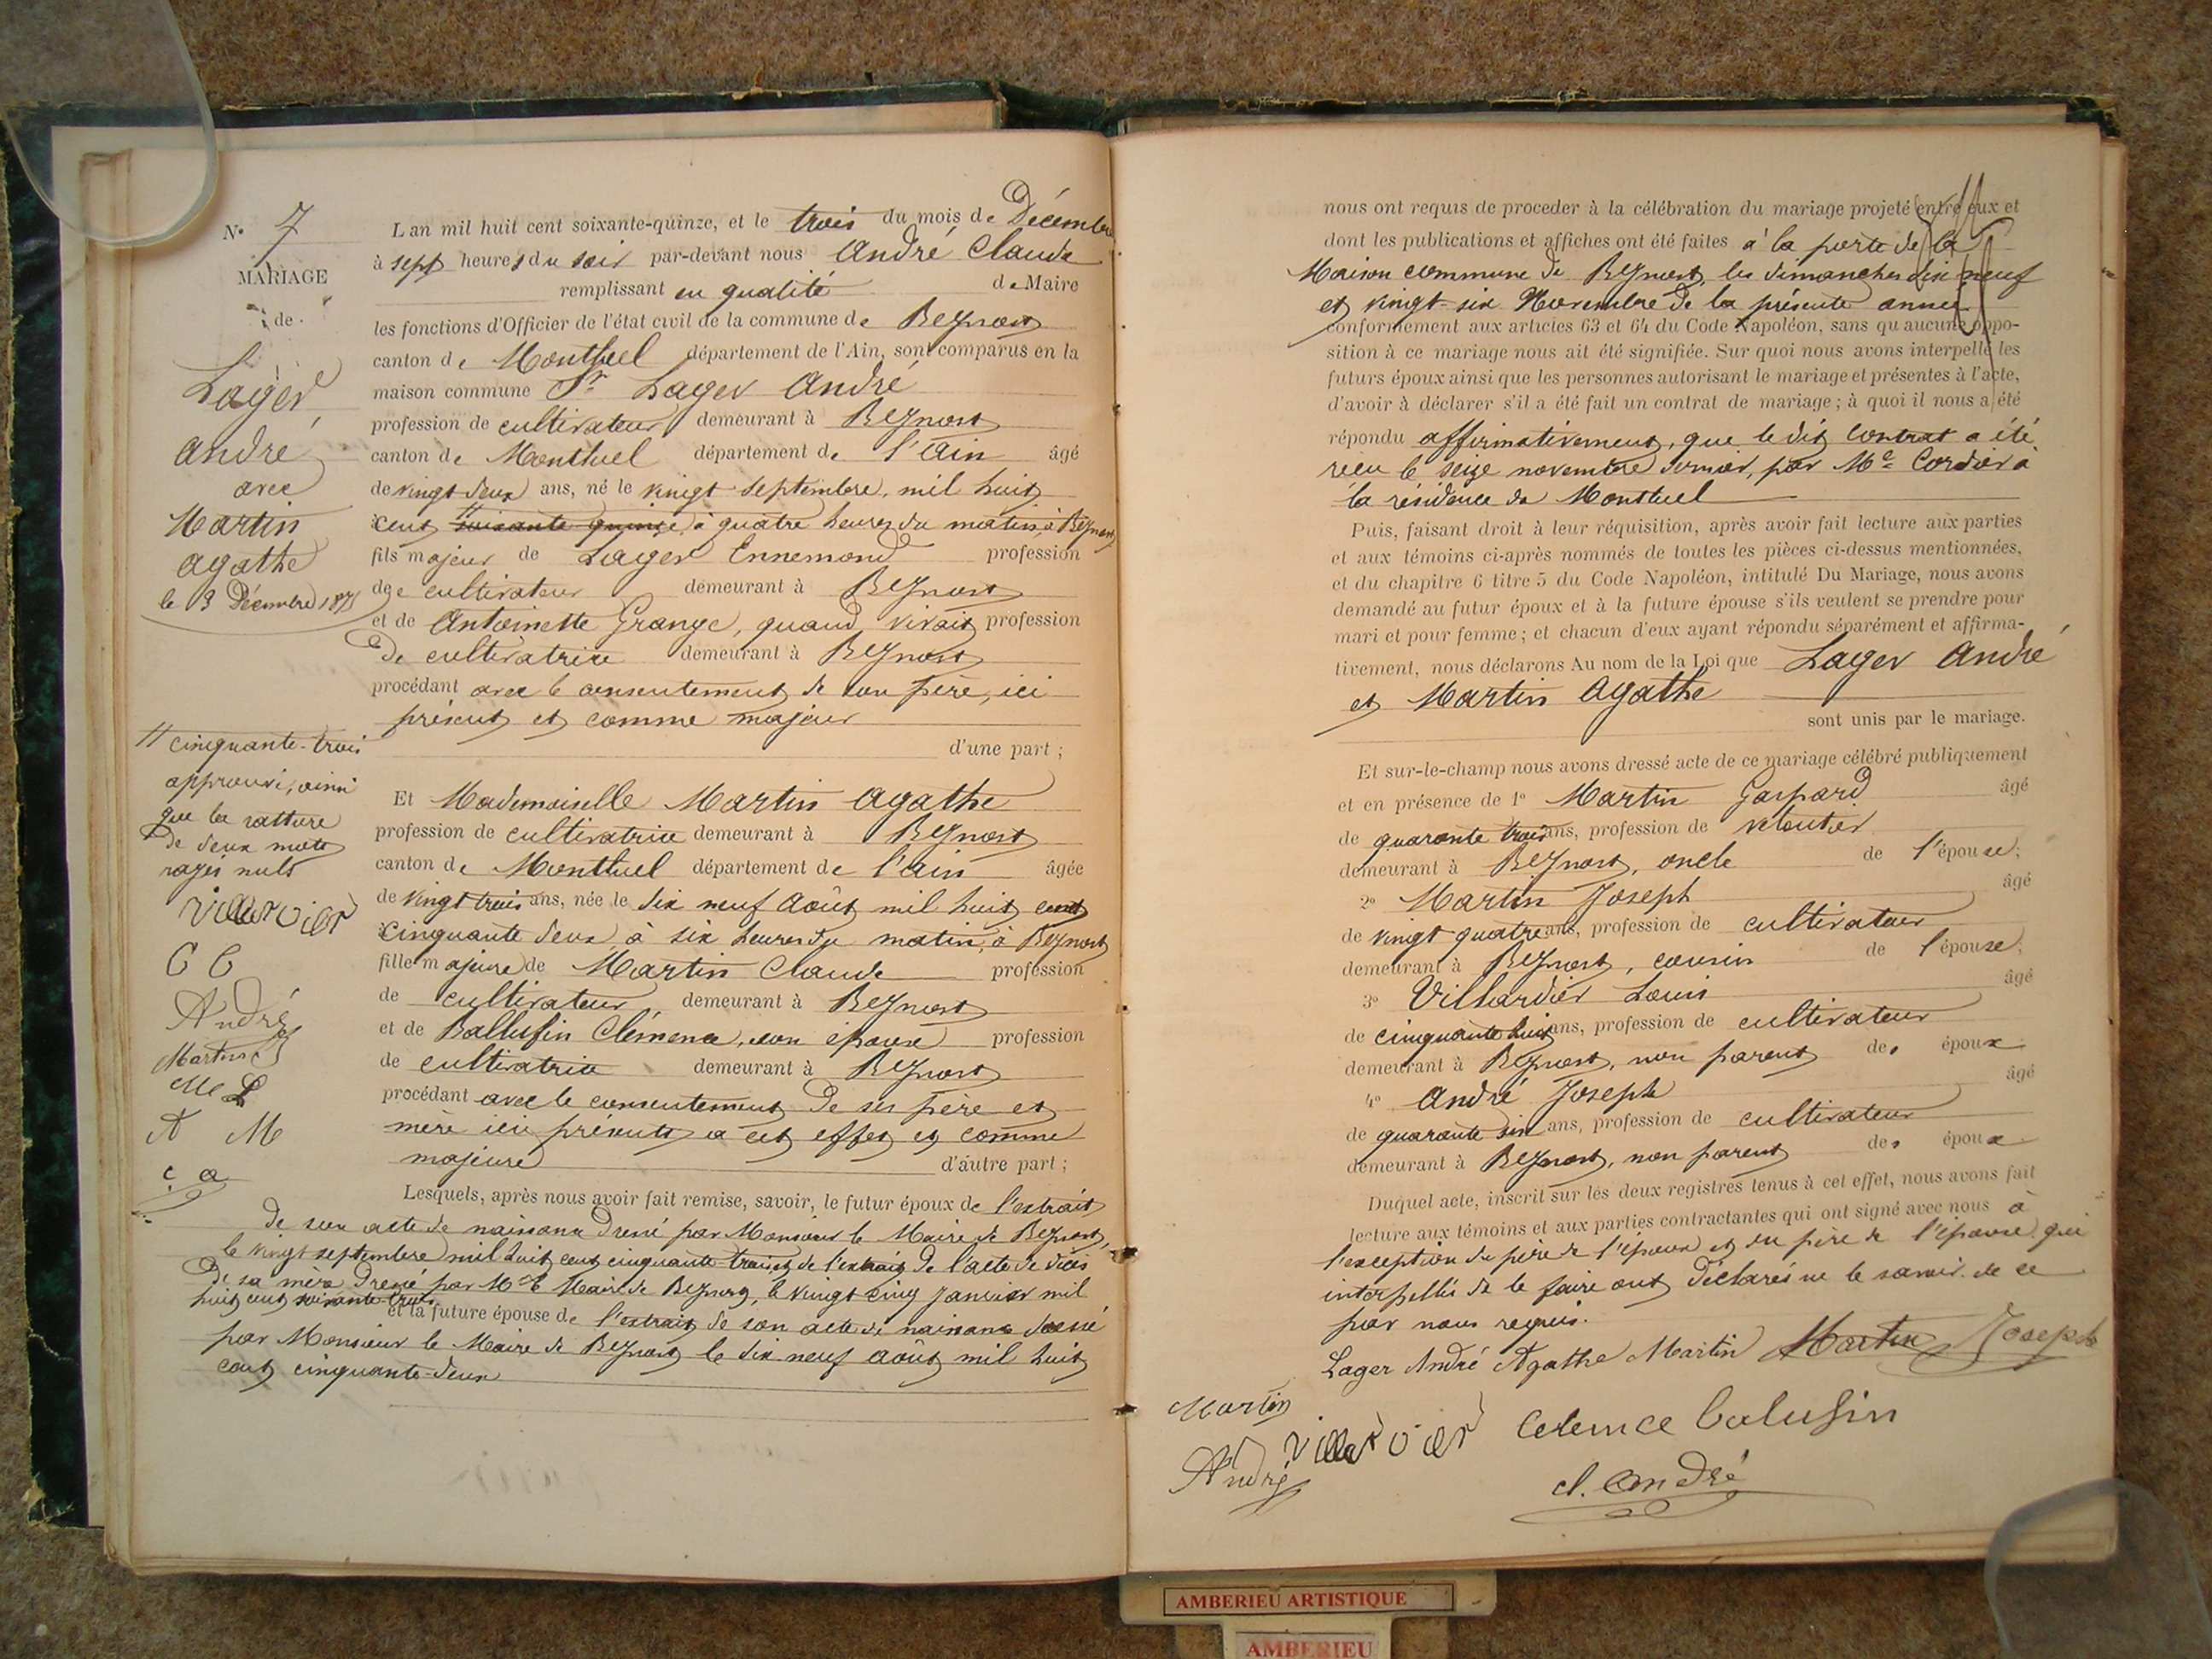 N° 7
MARIAGE
de
Lager
André
avec
Martin
Agathe
le 3 Décembre 1875
L'an mil huit cent soixante-quinze, et le trois du mois de Décembre
à sept heures du soir par-devant nous André Claude
remplissant en qualité de Maire
les fonctions d'Officier de l'état civil de la commune de Beynost
canton de Montluel département de l'Ain, sont comparus en la
maison commune Sr Lager André
profession de cultivateur demeurant à Beynost
canton de Montluel département de l'Ain âgé
de vingt deux ans, né le vingt septembre, mil huit
cent soixante quinze, à quatre heures du matin, à Beynost
fils majeur de Lager Ennemond profession
de cultivateur demeurant à Beynost
et de Antoinette Grange, quand vivait profession
de cultivatrice demeurant à Beynost
procédant avec le consentement de son père, ici
présent et comme majeur
d'une part ;
// cinquante-trois
approuvé, ainsi
que la rature
de deux mots
rayés nuls
Villardier
C C
André
Martin J
M L
A M
c a
Et Mademoiselle Martin Agathe
profession de cultivatrice demeurant à Beynost
canton de Montluel département de l'Ain âgée
de vingt trois ans, née le dix neuf Août mil huit cent
cinquante deux, à six heures du matin, à Beynost
fille majeure de Martin Claude profession
de cultivateur demeurant à Beynost
et de Ballufin Clémence, son épouse profession
de cultivatrice demeurant à Beynost
procédant avec le consentement de ses père et
mère ici présents à cet effet et comme
majeure d'autre part ;
Lesquels, après nous avoir fait remise, savoir, le futur époux de l'extrait
de son acte de naissance dressé par Monsieur le Maire de Beynost,
le vingt septembre mil huit cent cinquante-trois, et de l'extrait de l'acte de décès
de sa mère dressé par Mr le Maire de Beynost, le vingt cinq Janvier mil
huit cent soixante-trois
et la future épouse de l'extrait de son acte de naissance dressé
par Monsieur le Maire de Beynost le dix-neuf août mil huit
cent cinquante-deux
nous ont requis de procéder à la célébration du mariage projeté entre eux et
dont les publications et affiches ont été faites à la porte de la
Maison commune de Beynost, les dimanches dix neuf
et vingt-six Novembre de la présente année
conformément aux articles 63 et 64 du Code Napoléon, sans qu'aucune oppo-
sition à ce mariage nous ait été signifiée. Sur quoi nous avons interpellé les
futurs époux ainsi que les personnes autorisant le mariage et présentes à l'acte,
d'avoir à déclarer s'il a été fait un contrat de mariage ; à quoi il nous a été
répondu affirmativement, que le dit contrat a été
reçu le seize novembre dernier, par Me Cordier à
la résidence de Montluel
Puis, faisant droit à leur réquisition, après avoir fait lecture aux parties
et aux témoins ci-après nommés de toutes les pièces ci-dessus mentionnées,
et du chapitre 6 titre 5 du Code Napoléon, intitulé Du Mariage, nous avons
demandé au futur époux et à la future épouse s'ils veulent se prendre pour
mari et pour femme ; et chacun d'eux ayant répondu séparément et affirma-
tivement, nous déclarons Au nom de la Loi que Lager André
et Martin Agathe
sont unis par le mariage.
Et sur-le-champ nous avons dressé acte de ce mariage célébré publiquement
et en présence de 1° Martin Gaspard âgé
de quarante trois ans, profession de veloutier
demeurant à Beynost, oncle de l'épouse ;
2° Martin Joseph âgé
de vingt quatre ans, profession de cultivateur
demeurant à Beynost, cousin de l'épouse ;
3° Villardier Louis âgé
de cinquante huit ans, profession de cultivateur
demeurant à Beynost, non parent des époux
4° André Joseph âgé
de quarante six ans, profession de cultivateur
demeurant à Beynost, non parent des époux
Duquel acte, inscrit sur les deux registres tenus à cet effet, nous avons fait
lecture aux témoins et aux parties contractantes qui ont signé avec nous à
l'exception du père de l'époux et du père de l'épouse qui
interpellés de le faire ont déclaré ne le savoir de ce
par nous requis.
Lager André Agathe Martin Martin Joseph
Martin
Villardier Clemce Balufin
André
cl. André
AMBERIEU ARTISTIQUE
AMBERIEU